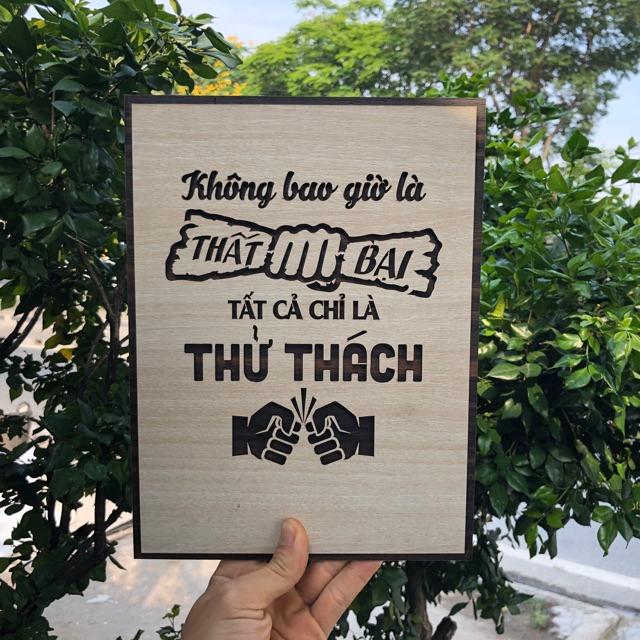 Không bao giờ là
THẤT BẠI
TẤT CẢ CHỈ LÀ
THỬ THÁCH